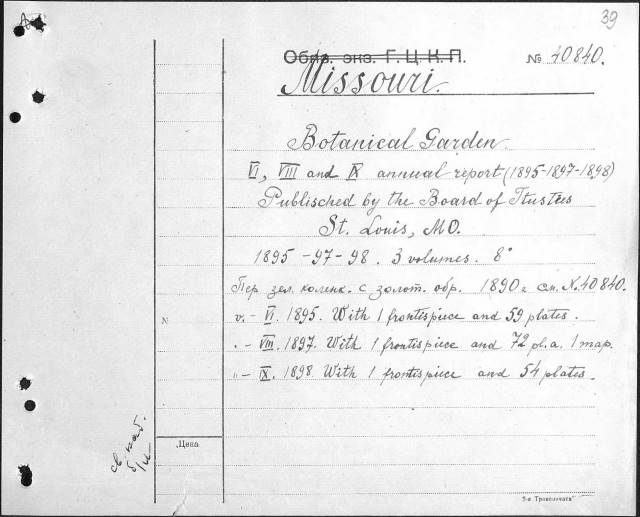 39
Обяз. экз. Г. Ц. К. П. № 40840.
Missouri.
Botanical Garden
VI, VIII and IX annual report (1895-1897-1898)
Publisched by the Board of Trustees
St. Louis, MO.
1895 -97-98. 3 volumes. 8°
Пер. зел. коленк. с золот. обр. 1890 г. см. N. 40840.
N v.- VI. 1895. With 1 frontispiece and 59 plates.
„- VIII. 1897. With 1 frontispiece and 72 pl. a. 1 map.
„- IX. 1898. With 1 frontispiece and 54 plates.
св. каб.
б/и
Цена